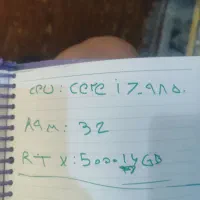 CPU: Core i7-9Th.
RAM: 32
RTX: 5000 16GB